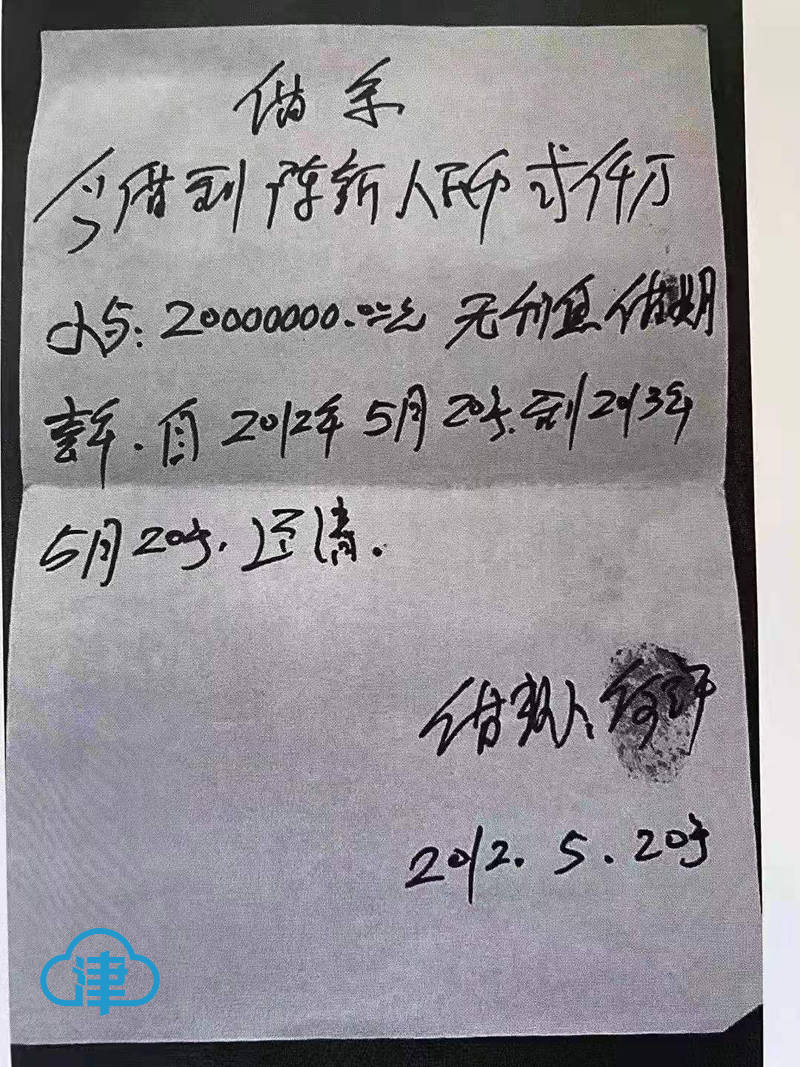 借条
今借到陈新人民币贰仟万
小写:20000000.00元 无利息借期
壹年.自2012年5月20号.到2013年
5月20号.还清.
借款人:
2012.5.20号
津